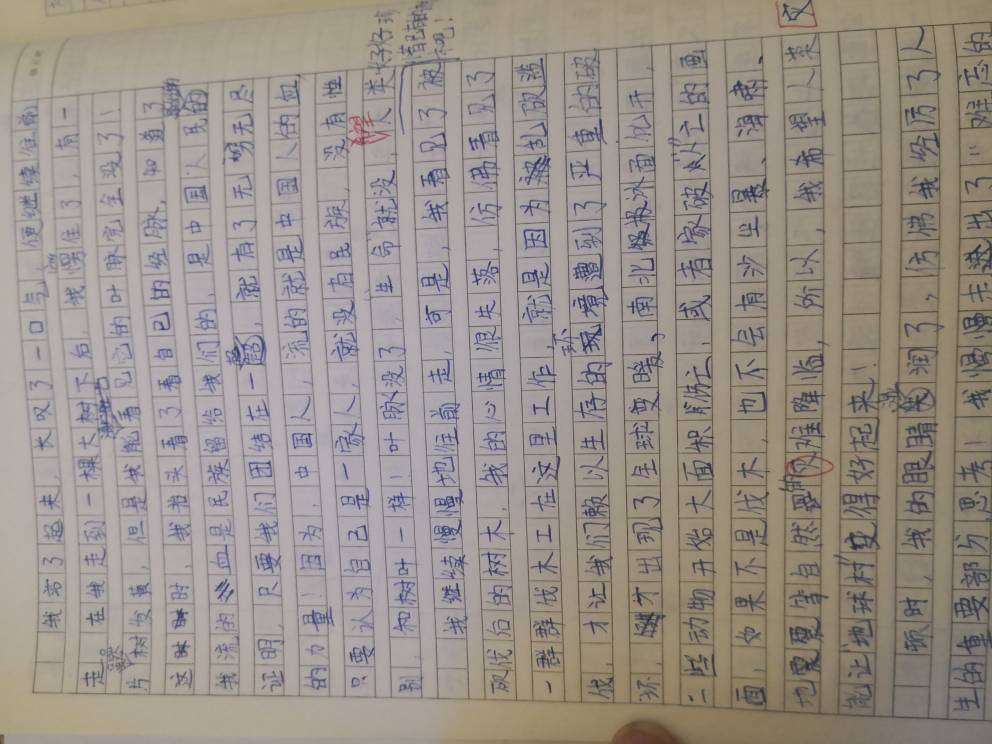 我站了起来，大叹了一口气，便继续往前
走。在我走到一棵大树下后，我愣住了，有一
片树发黄，但是我能看见它的叶脉完全没了！
这时，我抬头看了看自己的经脉，知道了
我流的血是民族留给我们的，是中国人民的
证明，只要我们团结在一起，就有了无穷无尽
的力量！因为，中国人，流的就是中国人的血，
只要认为自己是一家人，就没有民族，没有性
别，和树叶一样！叶脉没了，生命就没，人类好好珍
惜自己吧！
我继续慢慢地往前走，可是，我看见了被
砍伐后的树木，我的心情很失落，仿佛看见了
一群伐木工在这里工作，就是因为乱砍滥
伐，才让我们赖以生存的环境遭到了严重的破
坏，才出现了全球变暖，南北极冰面化开，
一些动物开始大面积伤亡，或者家破人亡的画
面，如果不是伐木，也不会有沙尘暴、海啸、
地震等自然灾难降临，所以，我希望人类
能让地球村变得好起来！
顿时，我的眼睛湿润了，仿佛我经历了人
生的重要部分，思考！我慢慢走出了：难忘的